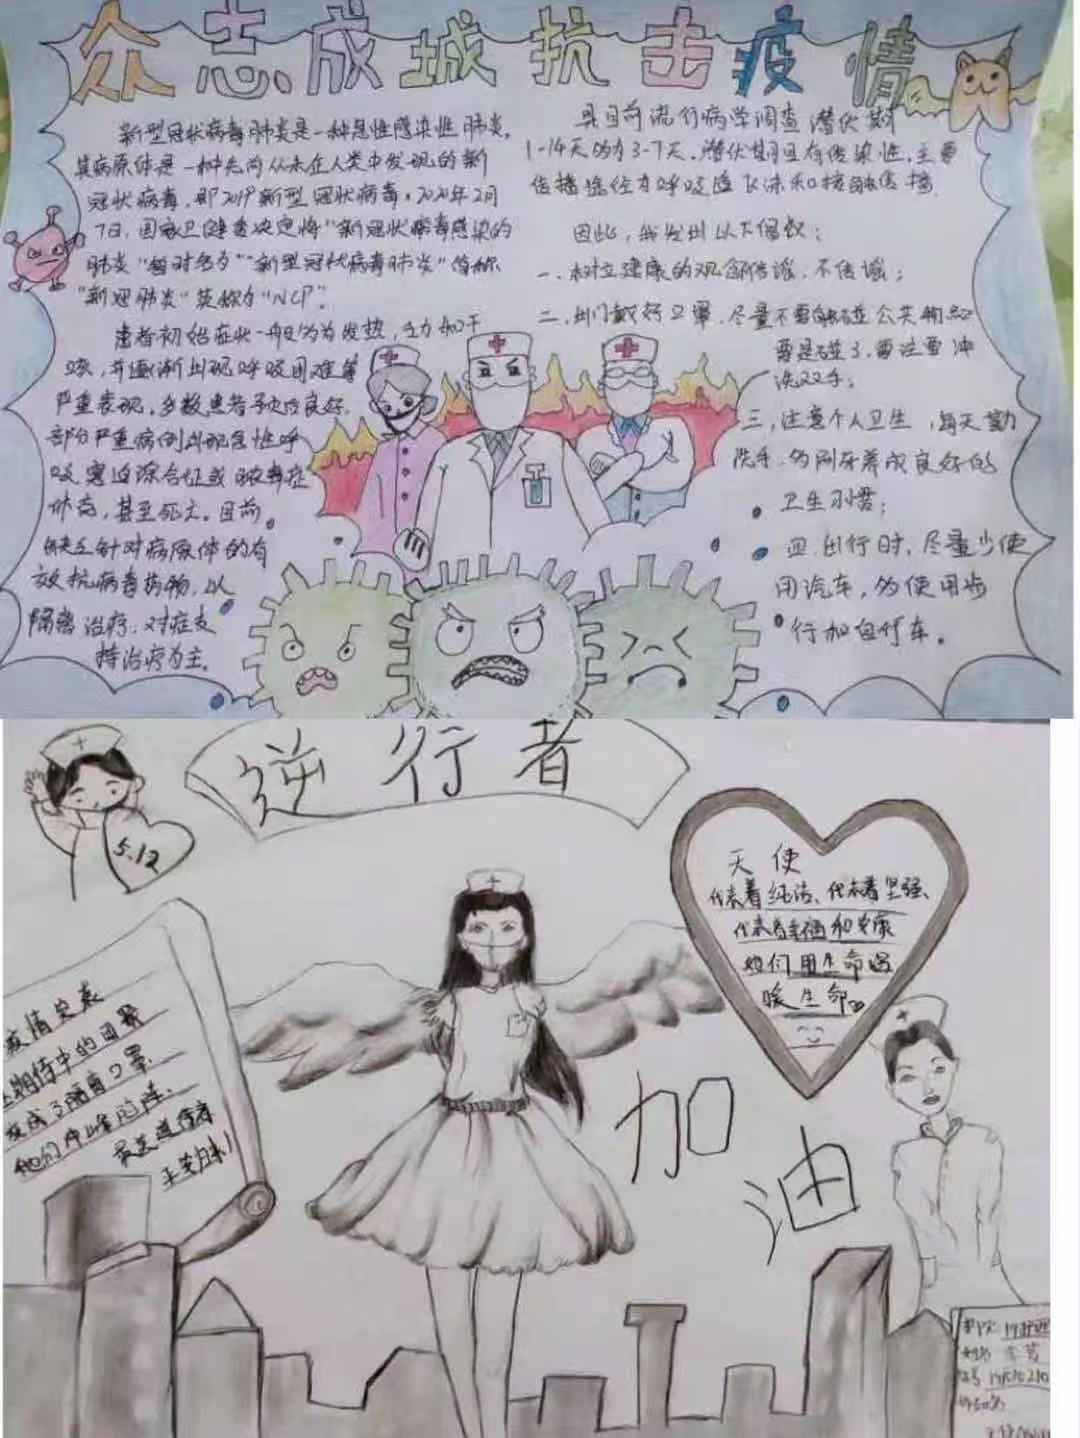 众志成城抗击疫情
新型冠状病毒肺炎是一种急性感染性肺炎,
其病原体是一种先前从未在人类中发现的新
冠状病毒,即2019新型冠状病毒。2020年2月
7日,国家卫健委决定将"新冠状病毒感染的
肺炎"暂时名为"新型冠状病毒肺炎"简称
"新冠肺炎"英称为"NCP".
患者初始症状一般为为发热,乏力和干
咳,并逐渐出现呼吸困难等
严重表现,多数患者预后良好,
部分严重病例出现急性呼
吸窘迫综合征或脓毒症
休克,甚至死亡。目前
缺乏针对病原体的有
效抗病毒药物,以
隔离治疗,对症支
持治疗为主.
目前流行病学调查潜伏期
1-14天 3-7天,潜伏期具有传染性,主要
传播途径为呼吸道飞沫和接触传播.
因此,我发出以下倡议:
一、树立健康的观念传谣,不信谣;
二、出门戴好口罩,尽量不要触碰公共物品
要是碰了,要注要冲
洗双手;
三、注意个人卫生,每天勤
洗手,多刷牙养成良好的
卫生习惯;
四、出行时,尽量少使
用汽车,多使用步
行和自行车。
逆行者
5.12
天使
代表着纯洁、代表着坚强、
代表着幸福和安康
她们用生命温
暖生命。
疫情
期待中的团聚
变成了隔离口罩
他们冲锋陷阵、
最美逆行者
加油